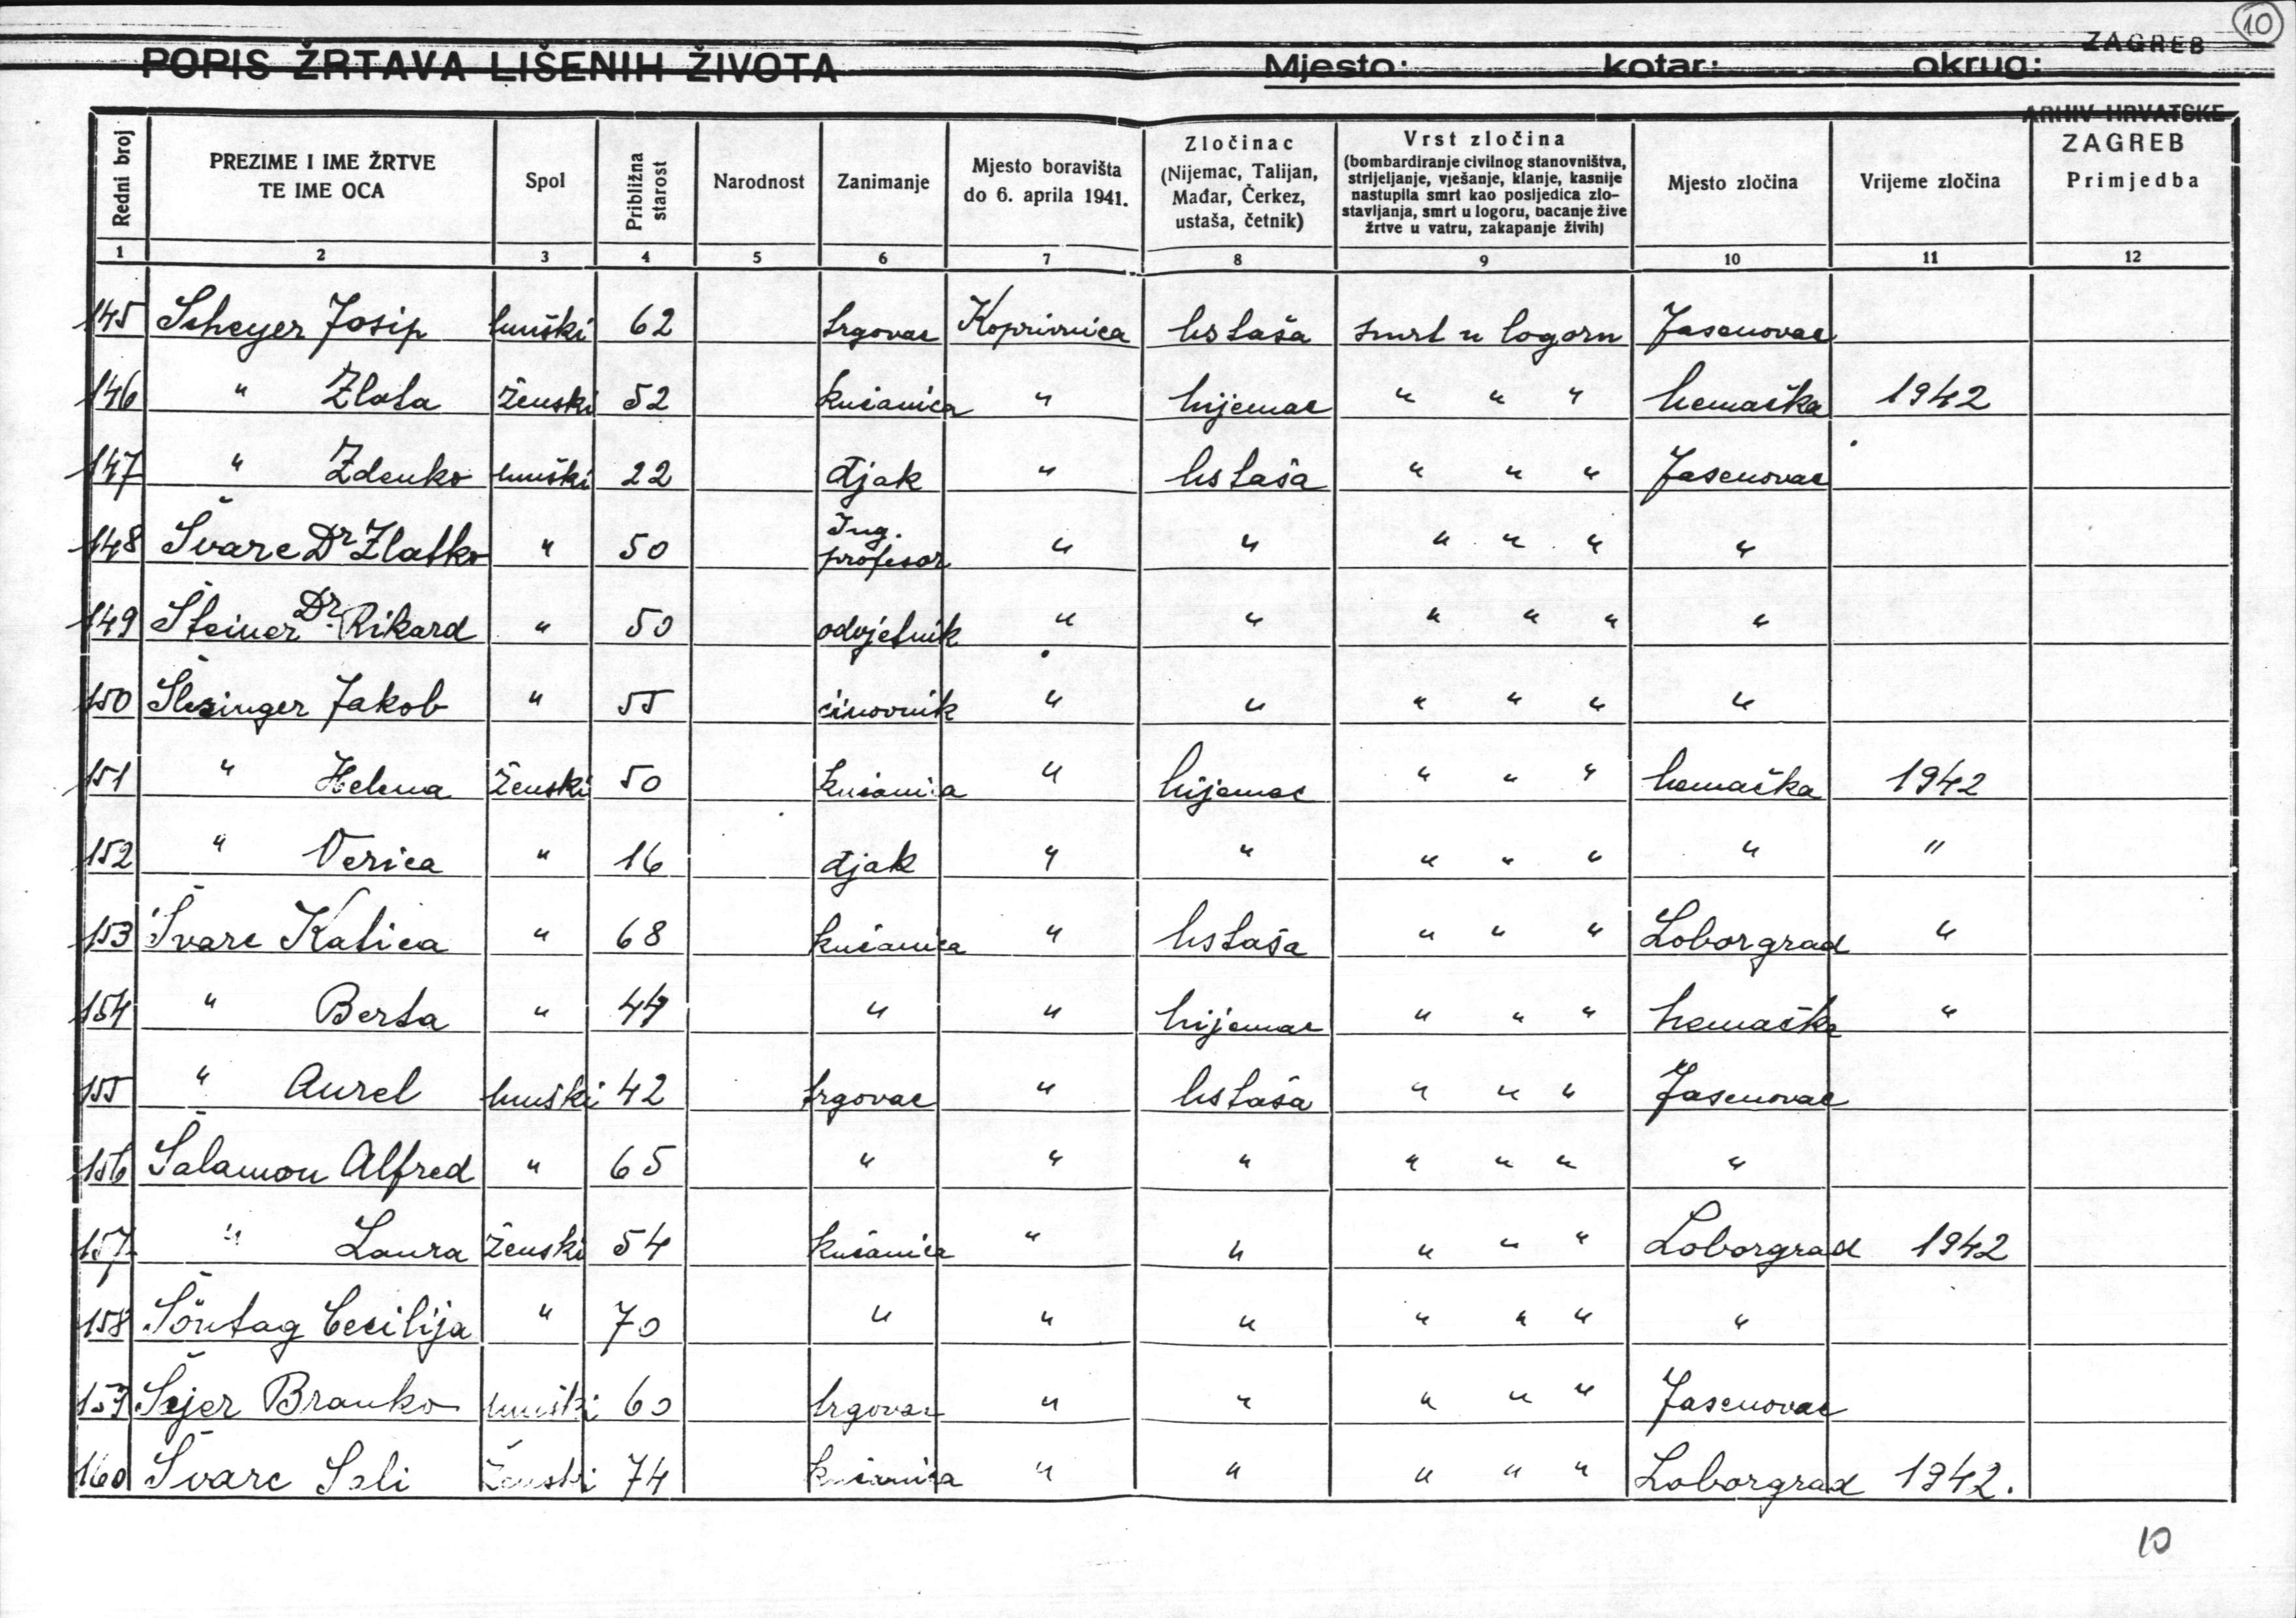 10
ZAGREB
POPIS ŽRTAVA LIŠENIH ŽIVOTA Mjesto: kotar: okrug:
ARHIV HRVATSKE
ZAGREB
Redni broj
PREZIME I IME ŽRTVE
TE IME OCA
Spol
Približna
starost
Narodnost
Zanimanje
Mjesto boravišta
do 6. aprila 1941.
Zločinac
(Nijemac, Talijan,
Mađar, Čerkez,
ustaša, četnik)
Vrst zločina
(bombardiranje civilnog stanovništva,
strijeljanje, vješanje, klanje, kasnije
nastupila smrt kao posljedica zlo-
stavljanja, smrt u logoru, bacanje žive
žrtve u vatru, zakapanje živih)
Mjesto zločina
Vrijeme zločina
Primjedba
1 2 3 4 5 6 7 8 9 10 11 12
145 Scheyer Josip muški 62 trgovac Koprivnica Ustaša smrt u logoru Jasenovac
146 " Zlata ženski 52 kućanica " Nijemac " " " Nemačka 1942
147 " Zdenko muški 22 djak " Ustaša " " " Jasenovac
148 Švarc Dr Zlatko " 50 Ing. profesor " " " " " "
149 Šteiner Dr. Rikard " 50 odvjetnik " " " " " "
150 Šlezinger Jakob " 55 činovnik " " " " " "
151 " Helena ženski 50 kućanica " Nijemac " " " Nemačka 1942
152 " Verica " 16 djak " " " " " " "
153 Švarc Katica " 68 kućanica " Ustaša " " " Loborgrad "
154 " Berta " 44 " " Nijemac " " " Nemačka "
155 " Aurel muški 42 trgovac " Ustaša " " " Jasenovac
156 Šalamon Alfred " 65 " " " " " " "
157 " Laura ženski 54 kućanica " " " " " Loborgrad 1942
158 Šöntag Cecilija " 70 " " " " " " "
159 Šejer Branko muški 60 trgovac " " " " " Jasenovac
160 Švarc Sali ženski 74 kućanica " " " " " Loborgrad 1942.
10